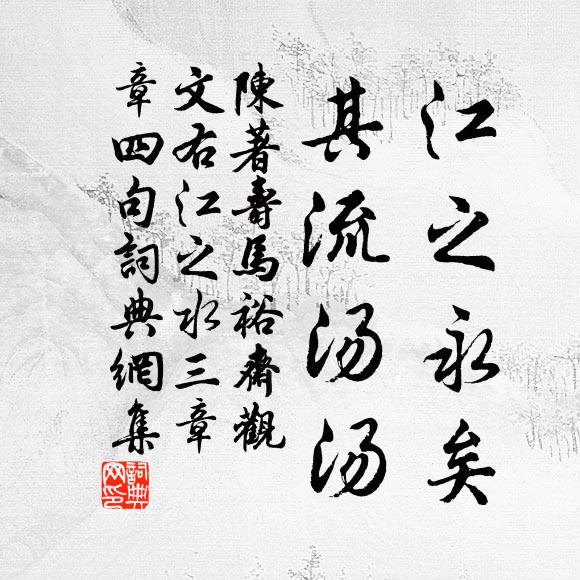 江之永矣
其流汤汤
陳著壽馬裕齋觀
文右江之水三章
章四句詞典網集
詞典网印